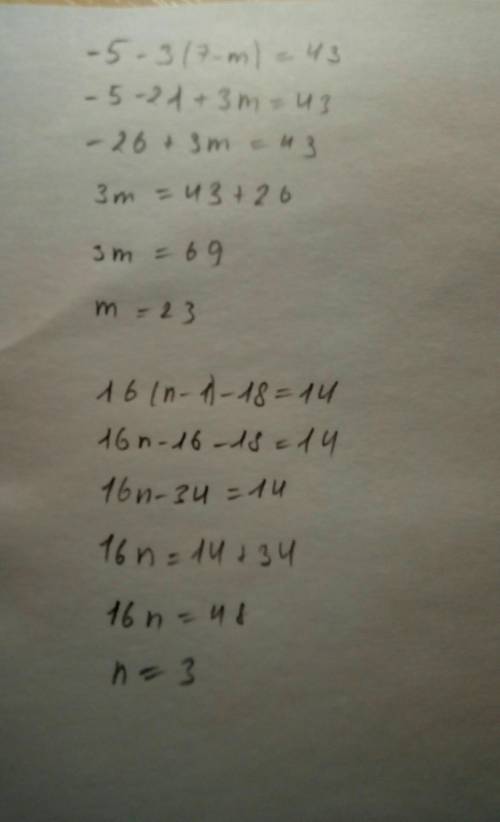 -5 - 3(7-m) = 43
-5 -21 + 3m = 43
-26 + 3m = 43
3m = 43 + 26
3m = 69
m = 23
16(n-1)-18=14
16n-16-18=14
16n-34=14
16n=14+34
16n=48
n=3